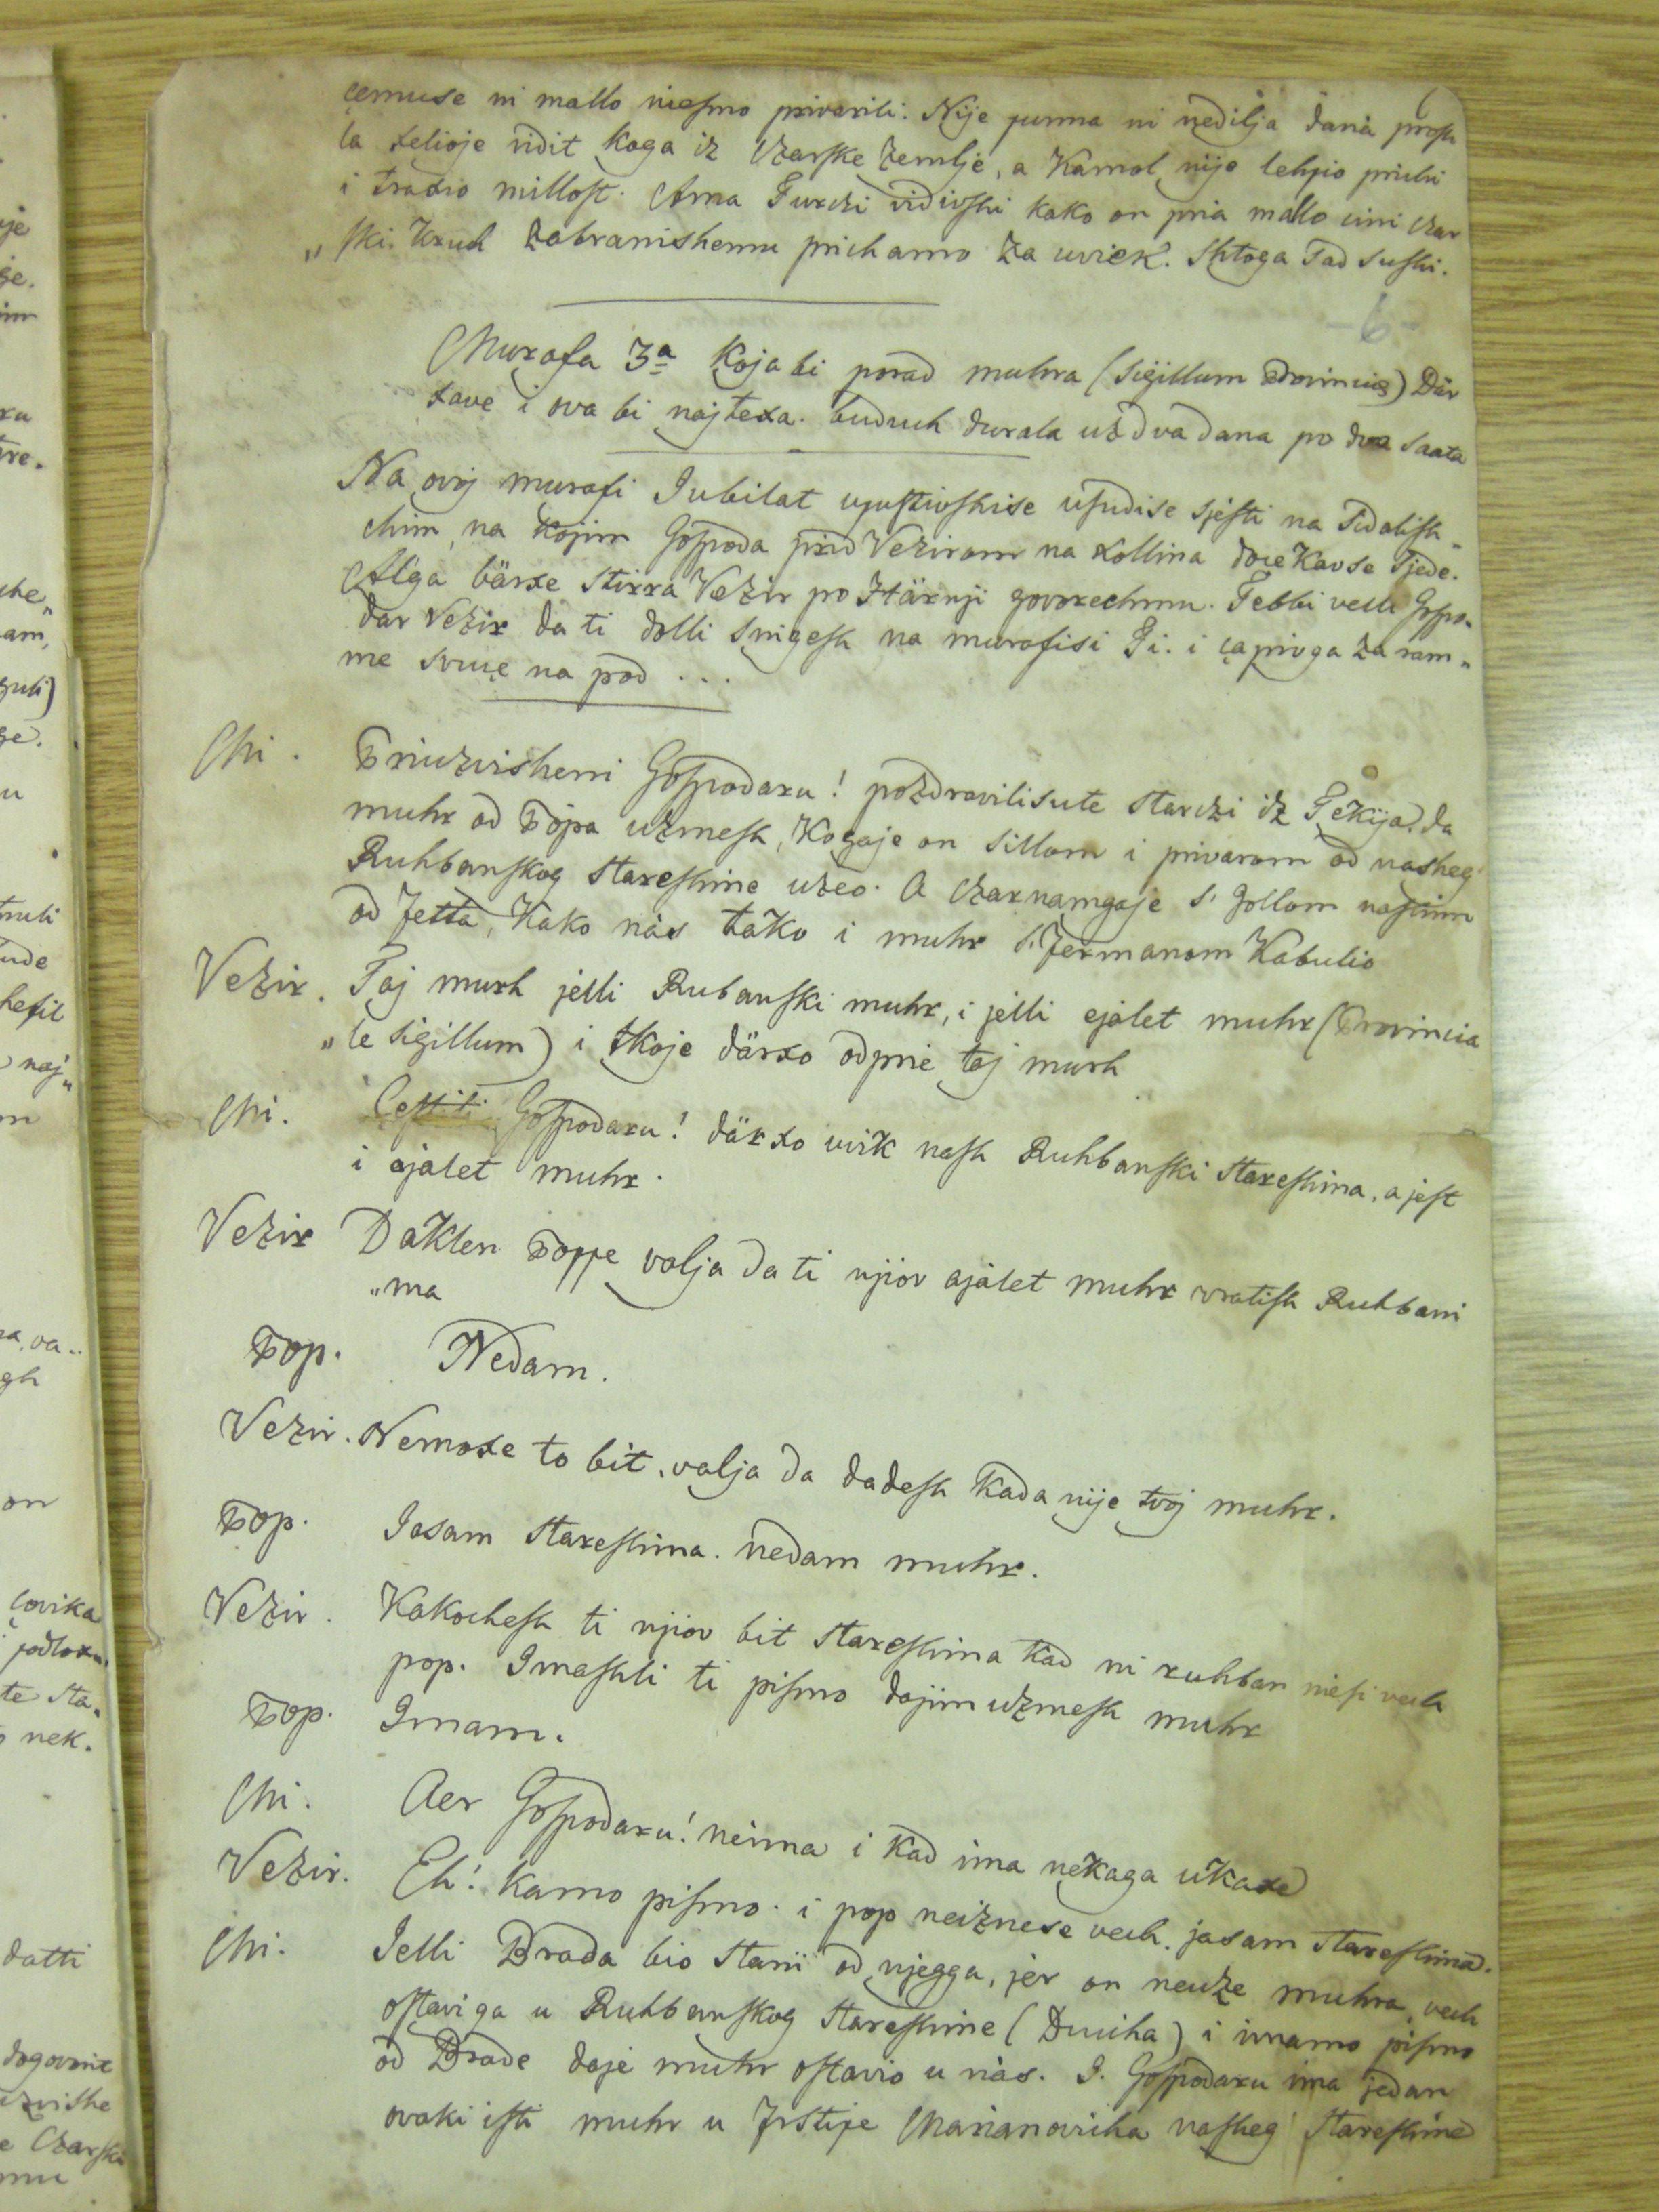 çemuse ni mallo niesmo privarili. Nije puna ni nedilja dana prosh
la xelioje vidit koga iz Czarske zemlje, a Kamol nije lehpio prichi
i traxio millost. Ama Turczi vidivshi kako on pria mallo cini czar
„ski. Kruh zabranishemu prichamo za uviek. Shtoga tad sushi.
- 6 -
Murafa 3ª Koja bi porad muhra (Sigillum Provinciæ) Där
xave i ova bi najtexa. buduch durala uz dva dana po dva saata
Na ovoj murafi Jubilat upustivshise usudise sjesti na Sidalish„
chim, na kojim Gospoda prid Vezirom na kollina doie Kavse Sjede.
Al'ga bärxe Stirra Vezir po Härnji govorechmu. Tebbi velli Gospo„
dar Vezir da ti dolli Snigesh na murafisi Fi. i çapivga za ram„
me svuçe na pod . . .
Chi. Priuzvisheni Gospodaru! pozdravilisute Starczi iz Tekija, da
muhr od Popa uzmesh, Kogaje on Sillom i privarom od nasheg
Ruhbanskog Stareshine uzeo. A Czarnamgaje S' Gollom nashim
od Jetta, Kako nas tako i muhr S. Fermanom Kabulio
Vezir. Taj murh jelli Rubanski muhr, i jelli ejalet muhr (Provincia
„le Sigillum) i tkoje därxo odprie taj murh
Chi. Cestiti Gospodaru! därxo uvik nash Ruhbanski Stareshina, a jest
i ajalet muhr.
Vezir Daklen Poppe valja da ti njiov ajalet muhr vratish Ruhbani
„ma
Pop. Nedam.
Vezir. Nemoxe to bit, valja da dadesh kada nije tvoj muhr.
Pop. Jasam Stareshina. nedam muhr.
Vezir. Kakochesh ti njiov bit Stareshina kad ni ruhban niesi vech
pop. Imashli ti pismo dajim uzmesh muhr
Pop. Imam.
Chi. Aer Gospodaru! neima i kad ima nekaga ukaxe
Vezir. Eh! kamo pismo. i pop neiznese vech. jasam Stareshina.
Chi. Jelli Brada bio Starii od njegga, jer on neuze muhra, vech
ostavi ga u Ruhbanskog Stareshine (Duicha) i imamo pismo
od Brade daje muhr ostavio u nas. I. Gospodaru ima jedan
ovaki isti muhr u Fr Stipe Marianovicha nasheg Stareshine